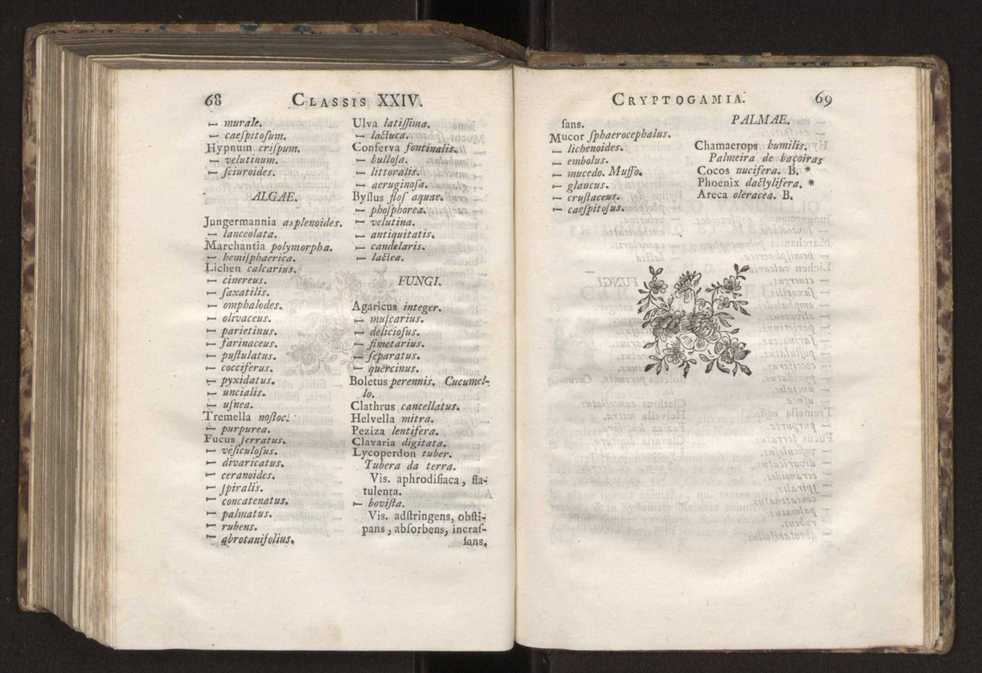 68 CLASSIS XXIV.
— murale.
— caeſpitoſum.
Hypnum criſpum.
— velutinum.
— ſciuroides.
ALGAE.
Jungermannia asplenoides.
— lanceolata.
Marchantia polymorpha.
— hemiſphaerica.
Lichen calcarius.
— cinereus.
— ſaxatilis.
— omphalodes.
— olivaceus.
— parietinus.
— farinaceus.
— puſtulatus.
— cocciferus.
— pyxidatus.
— uncialis.
— uſnea.
Tremella noſtoc.
— purpurea.
Fucus ſerratus.
— veſiculoſus.
— divaricatus.
— ceranoides.
— ſpiralis.
— concatenatus.
— palmatus.
— rubens.
— abrotanifolius.
Ulva latiſſima.
— lactuca.
Conferva fontinalis.
— bulloſa.
— littoralis.
— aeruginoſa.
Byſſus flos aquae.
— phoſphorea.
— velutina.
— antiquitatis.
— candelaris.
— lactea.
FUNGI.
Agaricus integer.
— muſcarius.
— delicioſus.
— fimetarius.
— ſeparatus.
— quercinus.
Boletus perennis. Cucumel-
lo.
Clathrus cancellatus.
Helvella mitra.
Peziza lentifera.
Clavaria digitata.
Lycoperdon tuber.
Tubera da terra.
Vis. aphrodiſiaca, fla-
tulenta.
— boviſta.
Vis. adſtringens, obſti-
pans, abſorbens, incraſ-
ſans.
CRYPTOGAMIA. 69
ſans.
Mucor ſphaerocephalus.
— lichenoides.
— embolus.
— mucedo. Muſſo.
— glaucus.
— cruſtaceus.
— caeſpitoſus.
PALMAE.
Chamaerops humilis.
Palmeira de baçoiras
Cocos nucifera. B. *
Phoenix dactylifera. *
Areca oleracea. B.